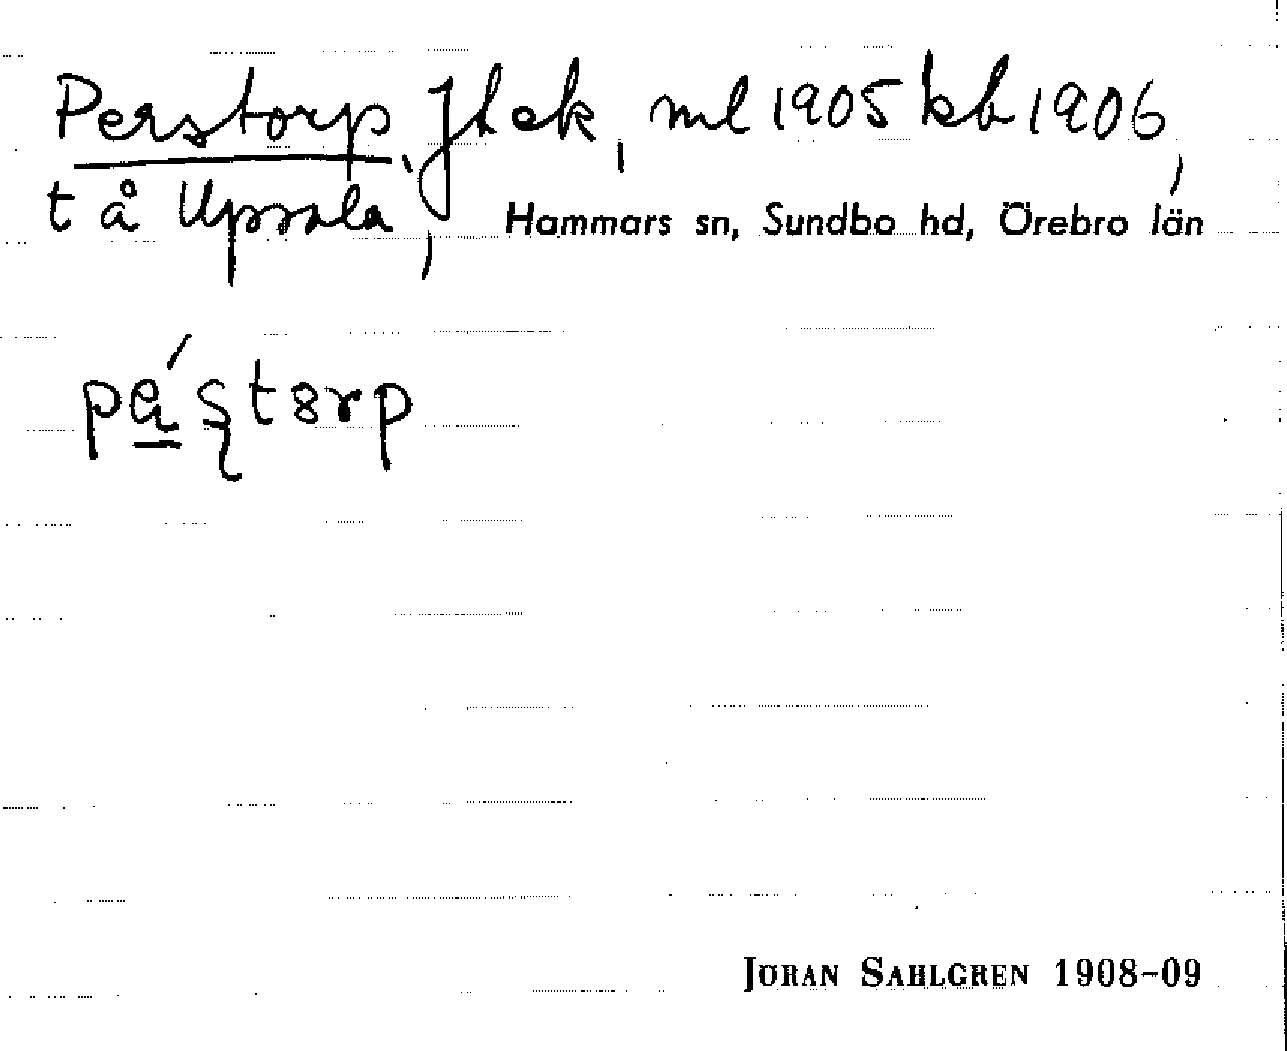 Perstorp, Jbek, ml 1905 kb 1906,
t å Uppsala, Hammars sn, Sundbo hd, Örebro län
JÖRAN SAHLGREN 1908–09